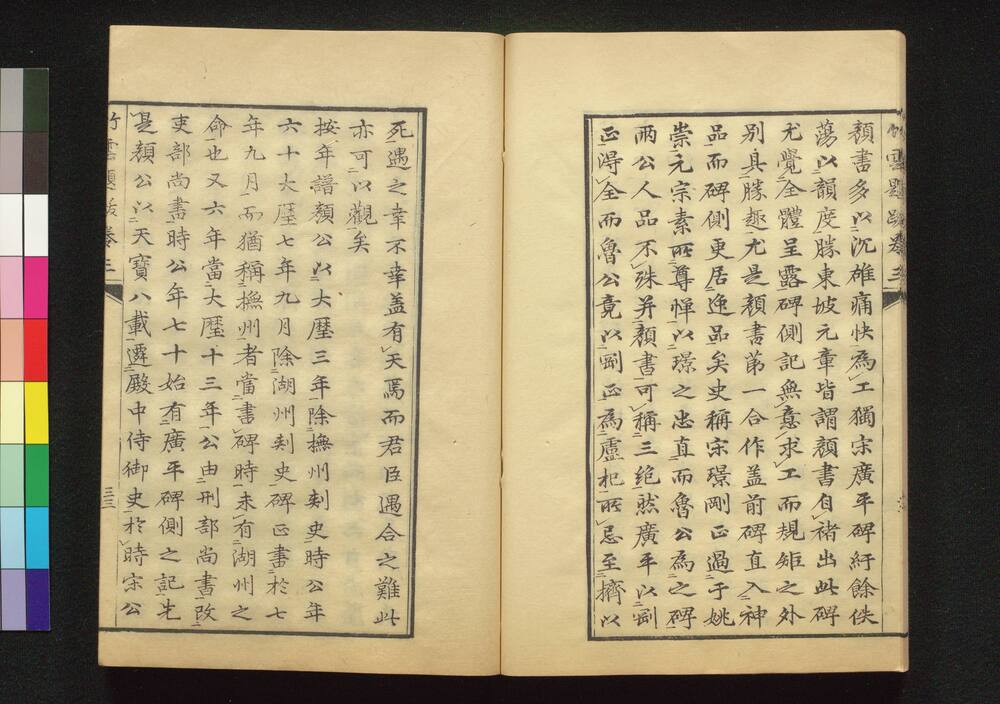 竹雲題跋卷三
顏書多以沉雄痛快為工獨宋廣平碑紆餘佚
蕩以韻度勝東坡元章皆謂顏書自褚出此碑
尤覺全體呈露碑側記無意求工而規矩之外
別具勝趣尤是顏書苐一合作盖前碑直入神
品而碑側更居逸品矣史稱宋璟剛正過于姚
崇元宗素所尊惮以璟之忠直而魯公為之碑
兩公人品不殊并顏書可稱三絕然廣平以剛
正得全而魯公竟以剛正為盧杞所忌至擠以
死遇之幸不幸盖有天焉而君臣遇合之難此
亦可以觀矣
按年譜顏公以大曆三年除撫州刾史時公年
六十大曆七年九月除湖州刾史碑正書於七
年九月而猶稱撫州者當書碑時未有湖州之
命也又六年當大曆十三年公由刑部尚書改
吏部尚書時公年七十始有廣平碑側之記先
是顏公以天寶八載遷殿中侍御史於時宋公
竹雲題跋卷三
三三